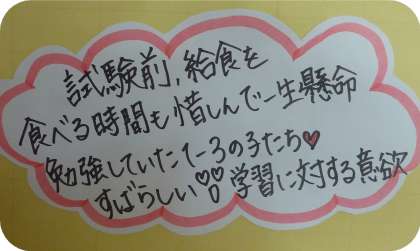 試験前,給食を
食べる時間も惜しんで一生懸命
勉強していた1-3の子たち♥
すばらしい♡♡!! 学習に対する意欲